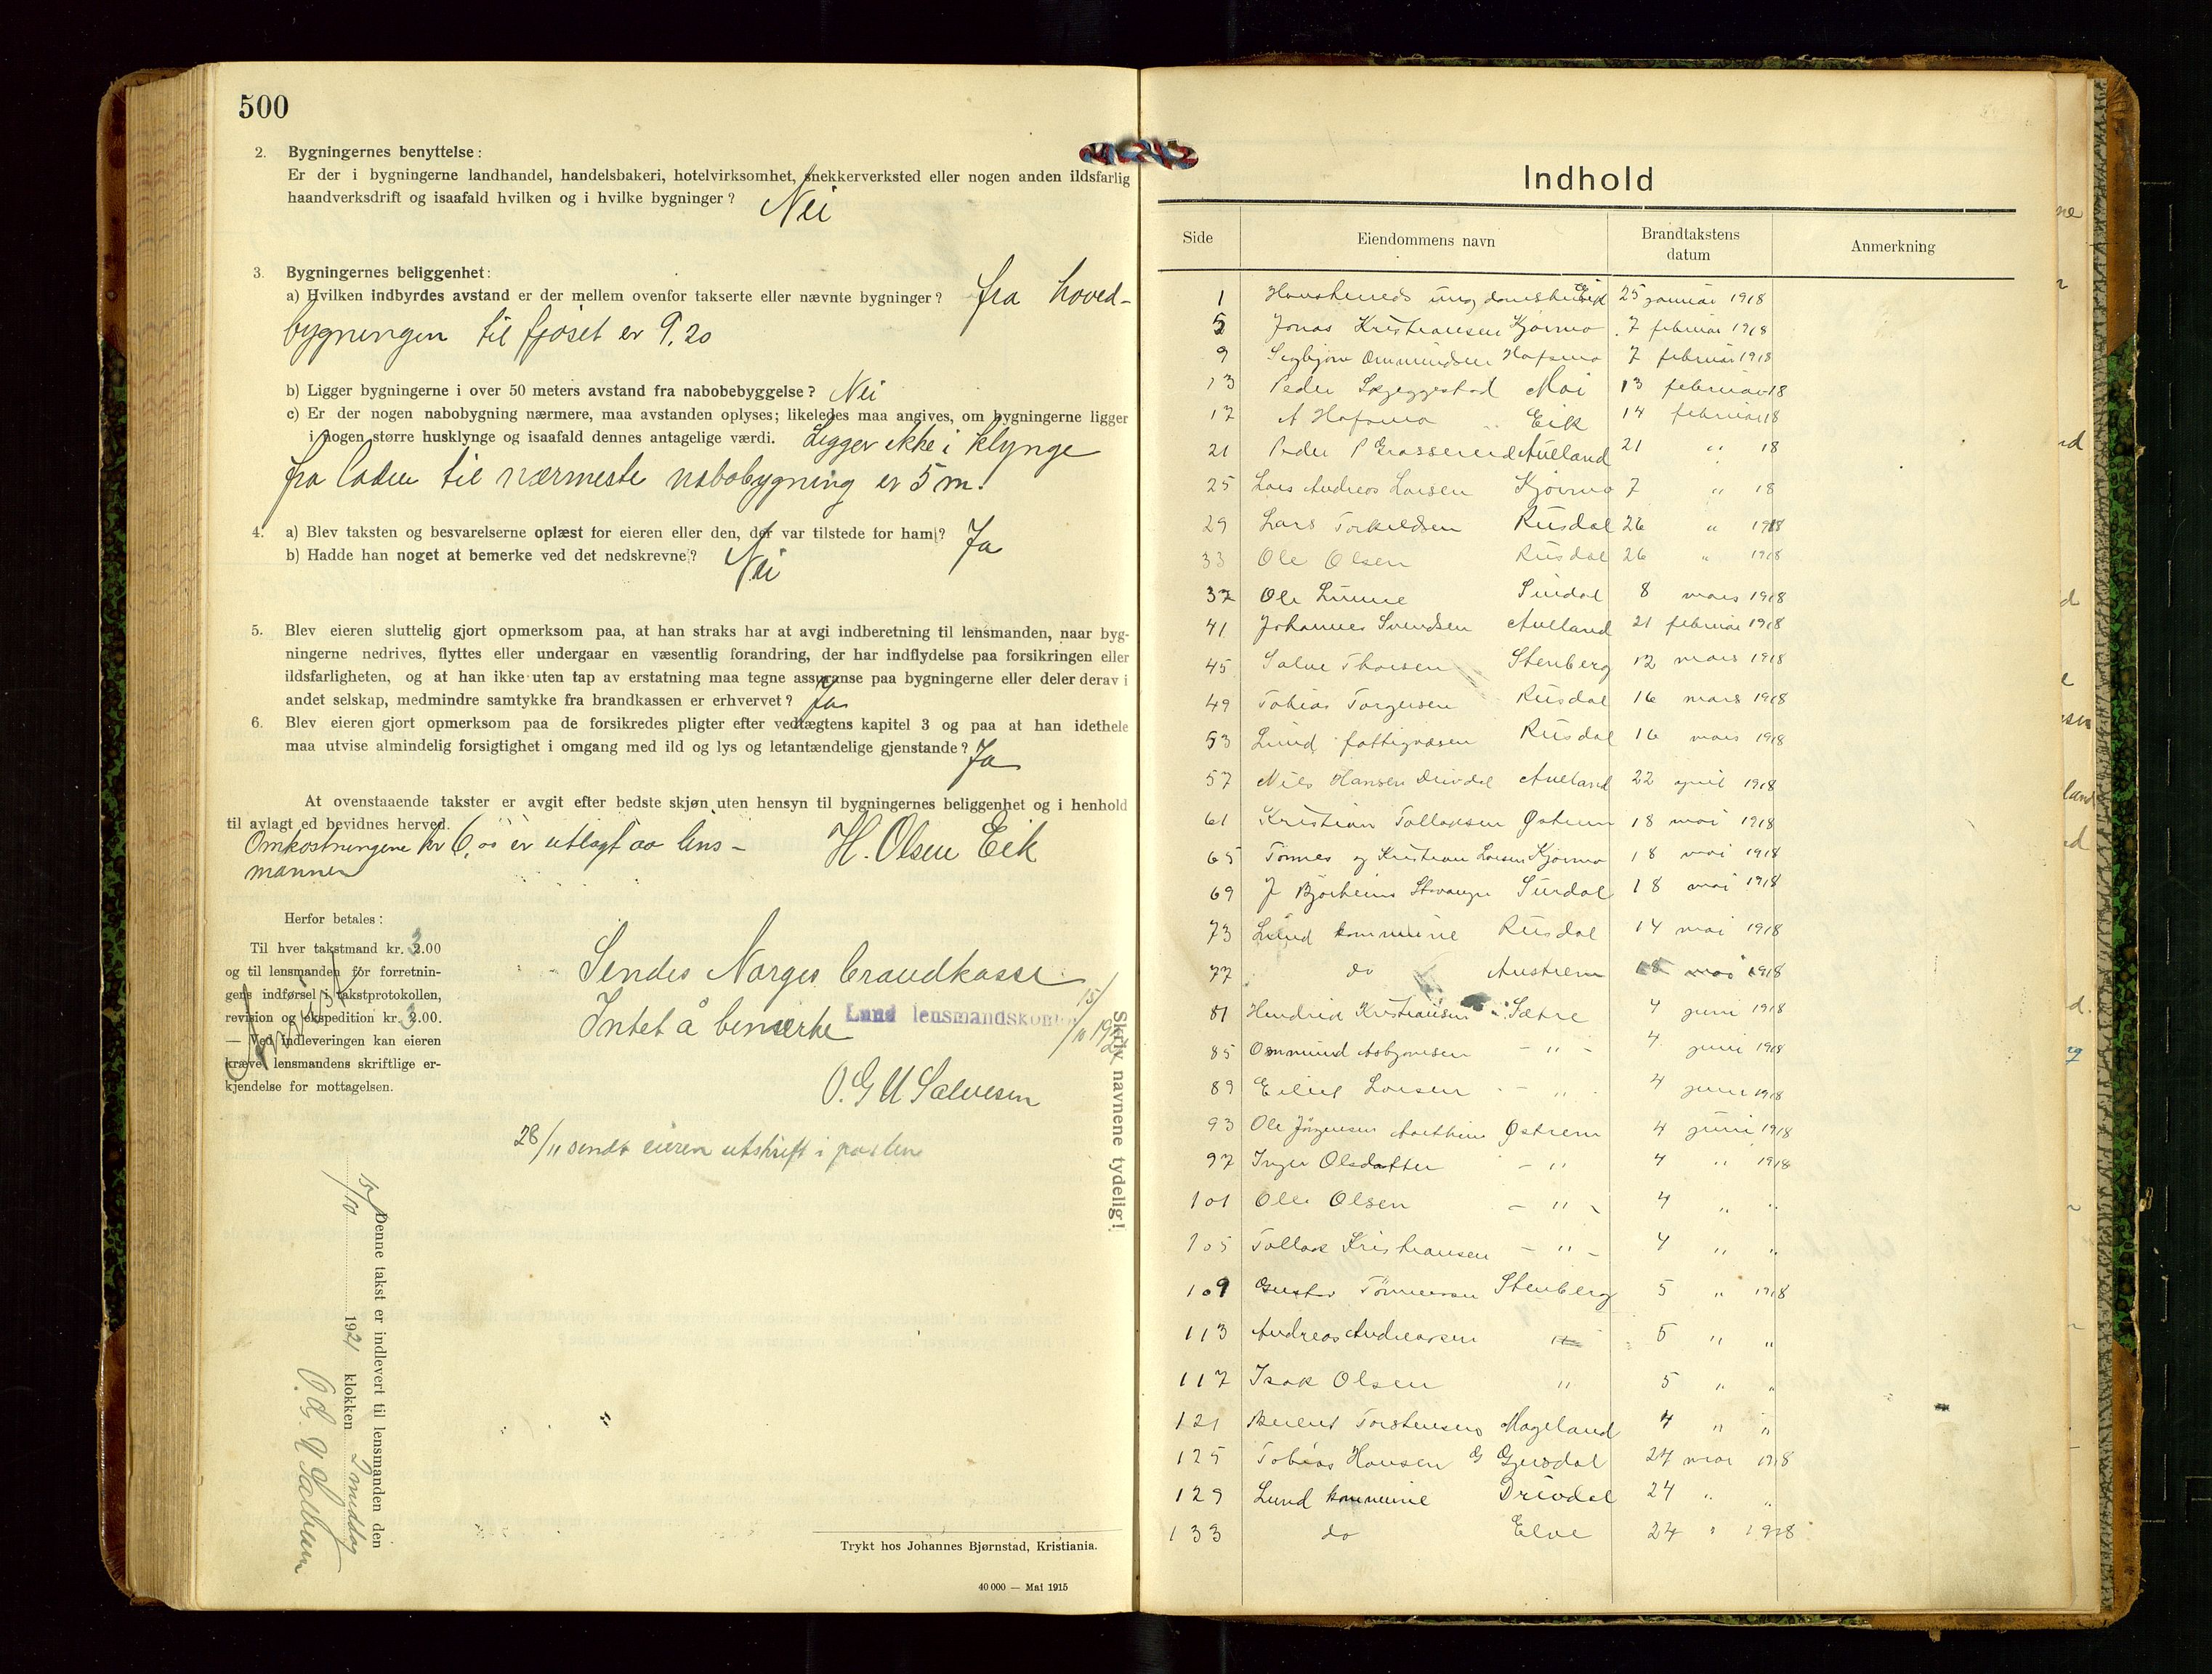 500
2. Bygningernes benyttelse:
Er der i bygningerne landhandel, handelsbakeri, hotelvirksomhet, snekkerverksted eller nogen anden ildsfarlig
haandverksdrift og isaafald hvilken og i hvilke bygninger? Nei
3. Bygningernes beliggenhet:
a) Hvilken indbyrdes avstand er der mellem ovenfor takserte eller nævnte bygninger? fra hoved-
bygningen til fjøset er 9,20
b) Ligger bygningerne i over 50 meters avstand fra nabobebyggelse? Nei
c) Er der nogen nabobygning nærmere, maa avstanden oplyses; likeledes maa angives, om bygningerne ligger
i nogen større husklynge og isaafald dennes antagelige værdi. Ligger ikke i klynge
fra laden til nærmeste nabobygning er 5 m.
4. a) Blev taksten og besvarelserne oplæst for eieren eller den, der var tilstede for ham? Ja
b) Hadde han noget at bemerke ved det nedskrevne? Nei
5. Blev eieren sluttelig gjort opmerksom paa, at han straks har at avgi indberetning til lensmanden, naar byg-
ningerne nedrives, flyttes eller undergaar en væsentlig forandring, der har indflydelse paa forsikringen eller
ildsfarligheten, og at han ikke uten tap av erstatning maa tegne assuranse paa bygningerne eller deler derav i
andet selskap, medmindre samtykke fra brandkassen er erhvervet? Ja
6. Blev eieren gjort opmerksom paa de forsikredes pligter efter vedtægtens kapitel 3 og paa at han idethele
maa utvise almindelig forsigtighet i omgang med ild og lys og letantændelige gjenstande? Ja
At ovenstaaende takster er avgit efter bedste skjøn uten hensyn til bygningernes beliggenhet og i henhold
til avlagt ed bevidnes herved.
Omkostningene kr 6,00 er utlagt av lens-
mannen
H. Olsen Eik
Herfor betales:
Til hver takstmand kr. 3.00
og til lensmanden for forretnin-
gens indførsel i takstprotokollen,
revision og ekspedition kr. 3.00.
— Ved indleveringen kan eieren
kræve lensmandens skriftlige er-
kjendelse for mottagelsen.
Sendes Norges brandkasse
Intet å bemerke
Lund lensmandskontor 15/10 1921
O. G U Salvesen
28/11 sendt eieren utskrift i posten
Skriv navnene tydelig!
Denne takst er indlevert til lensmanden den
15/10 1921 klokken middag
O. G. U Salvesen
Trykt hos Johannes Bjørnstad, Kristiania.
40 000 — Mai 1915
Indhold
Side Eiendommens navn Brandtakstens datum Anmerkning
1 Eik 25 januar 1918
5 Jonas Kristiansen Kjørmo 7 februar 1918
9 Ommundsen Hafsmo 7 februar 1918
13 Peder Skjeggestad Moi 13 februar 18
17 A Hafsmo Eik 14 februar 18
21 Peder P Grosserud Aulland 21 " 18
25 Lars Andreas Larsen Kjørmo 7 " 18
29 Lars Torkildsen Rusdal 26 " 1918
33 Ole Olsen Rusdal 26 " 1918
37 Ole Lunne Surdal 8 mars 1918
41 Johannes Svendsen Aulland 21 februar 1918
45 Salve Thorsen Stenberg 12 mars 1918
49 Tobias Torgersen Rusdal 16 mars 1918
53 Lund fattigvæsen Rusdal 16 mars 1918
57 Nils Hansen Drivdal Aulland 22 april 1918
61 Kristian Tollaksen Østrem 18 mai 1918
65 Tønnes og Kristian Larsen Kjørmo 18 mai 1918
69 J Bjørheim Stavanger Surdal 18 mai 1918
73 Lund kommune Rusdal 14 mai 1918
77 do Austrem 18 mai 1918
81 Hendrik Kristiansen Sætre 4 juni 1918
85 Ommund Asbjørnsen - " - 4 juni 1918
89 Eilert Larsen - " 4 juni 1918
93 Ole Jørgensen Østrem 4 juni 1918
97 Inger Olsdatter - " 4 " 1918
101 Olle Olsen - " - 4 " "
105 Tollak Kristiansen - " - 4 " "
109 Gustav Tønnessen Stenberg 5 " 1918
113 Andreas Andreassen " 5 " "
117 Isak Olsen " 5 " "
121 Berent Torstensen Mageland 4 " "
125 Tobias Hansen G Gjersdal 24 mai 1918
129 Lund kommune Drivdal 24 " "
133 do Elve 24 " 1918